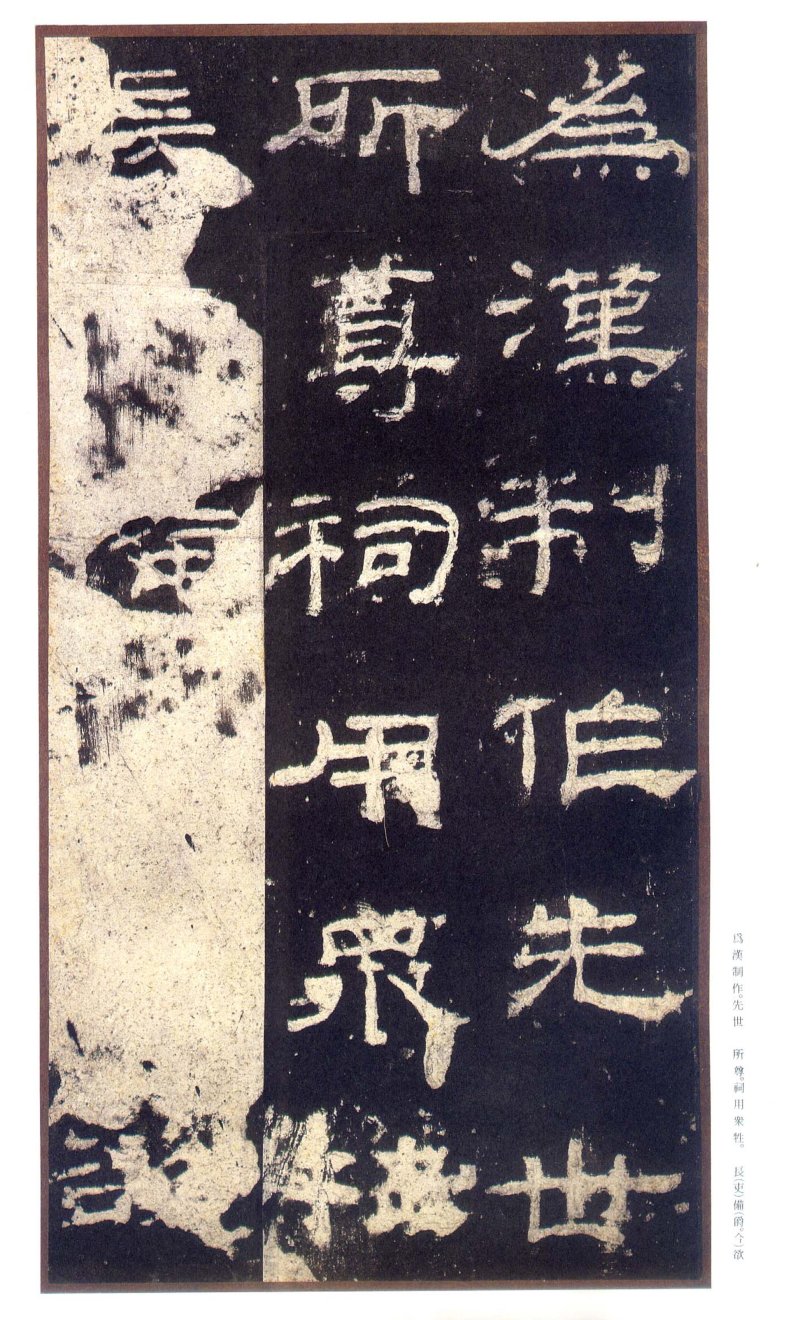 爲漢制作先世
所尊祠用衆牲
長備
爲漢制作。先世　所尊。祠用衆牲。　長(吏)備(爵。今)欲